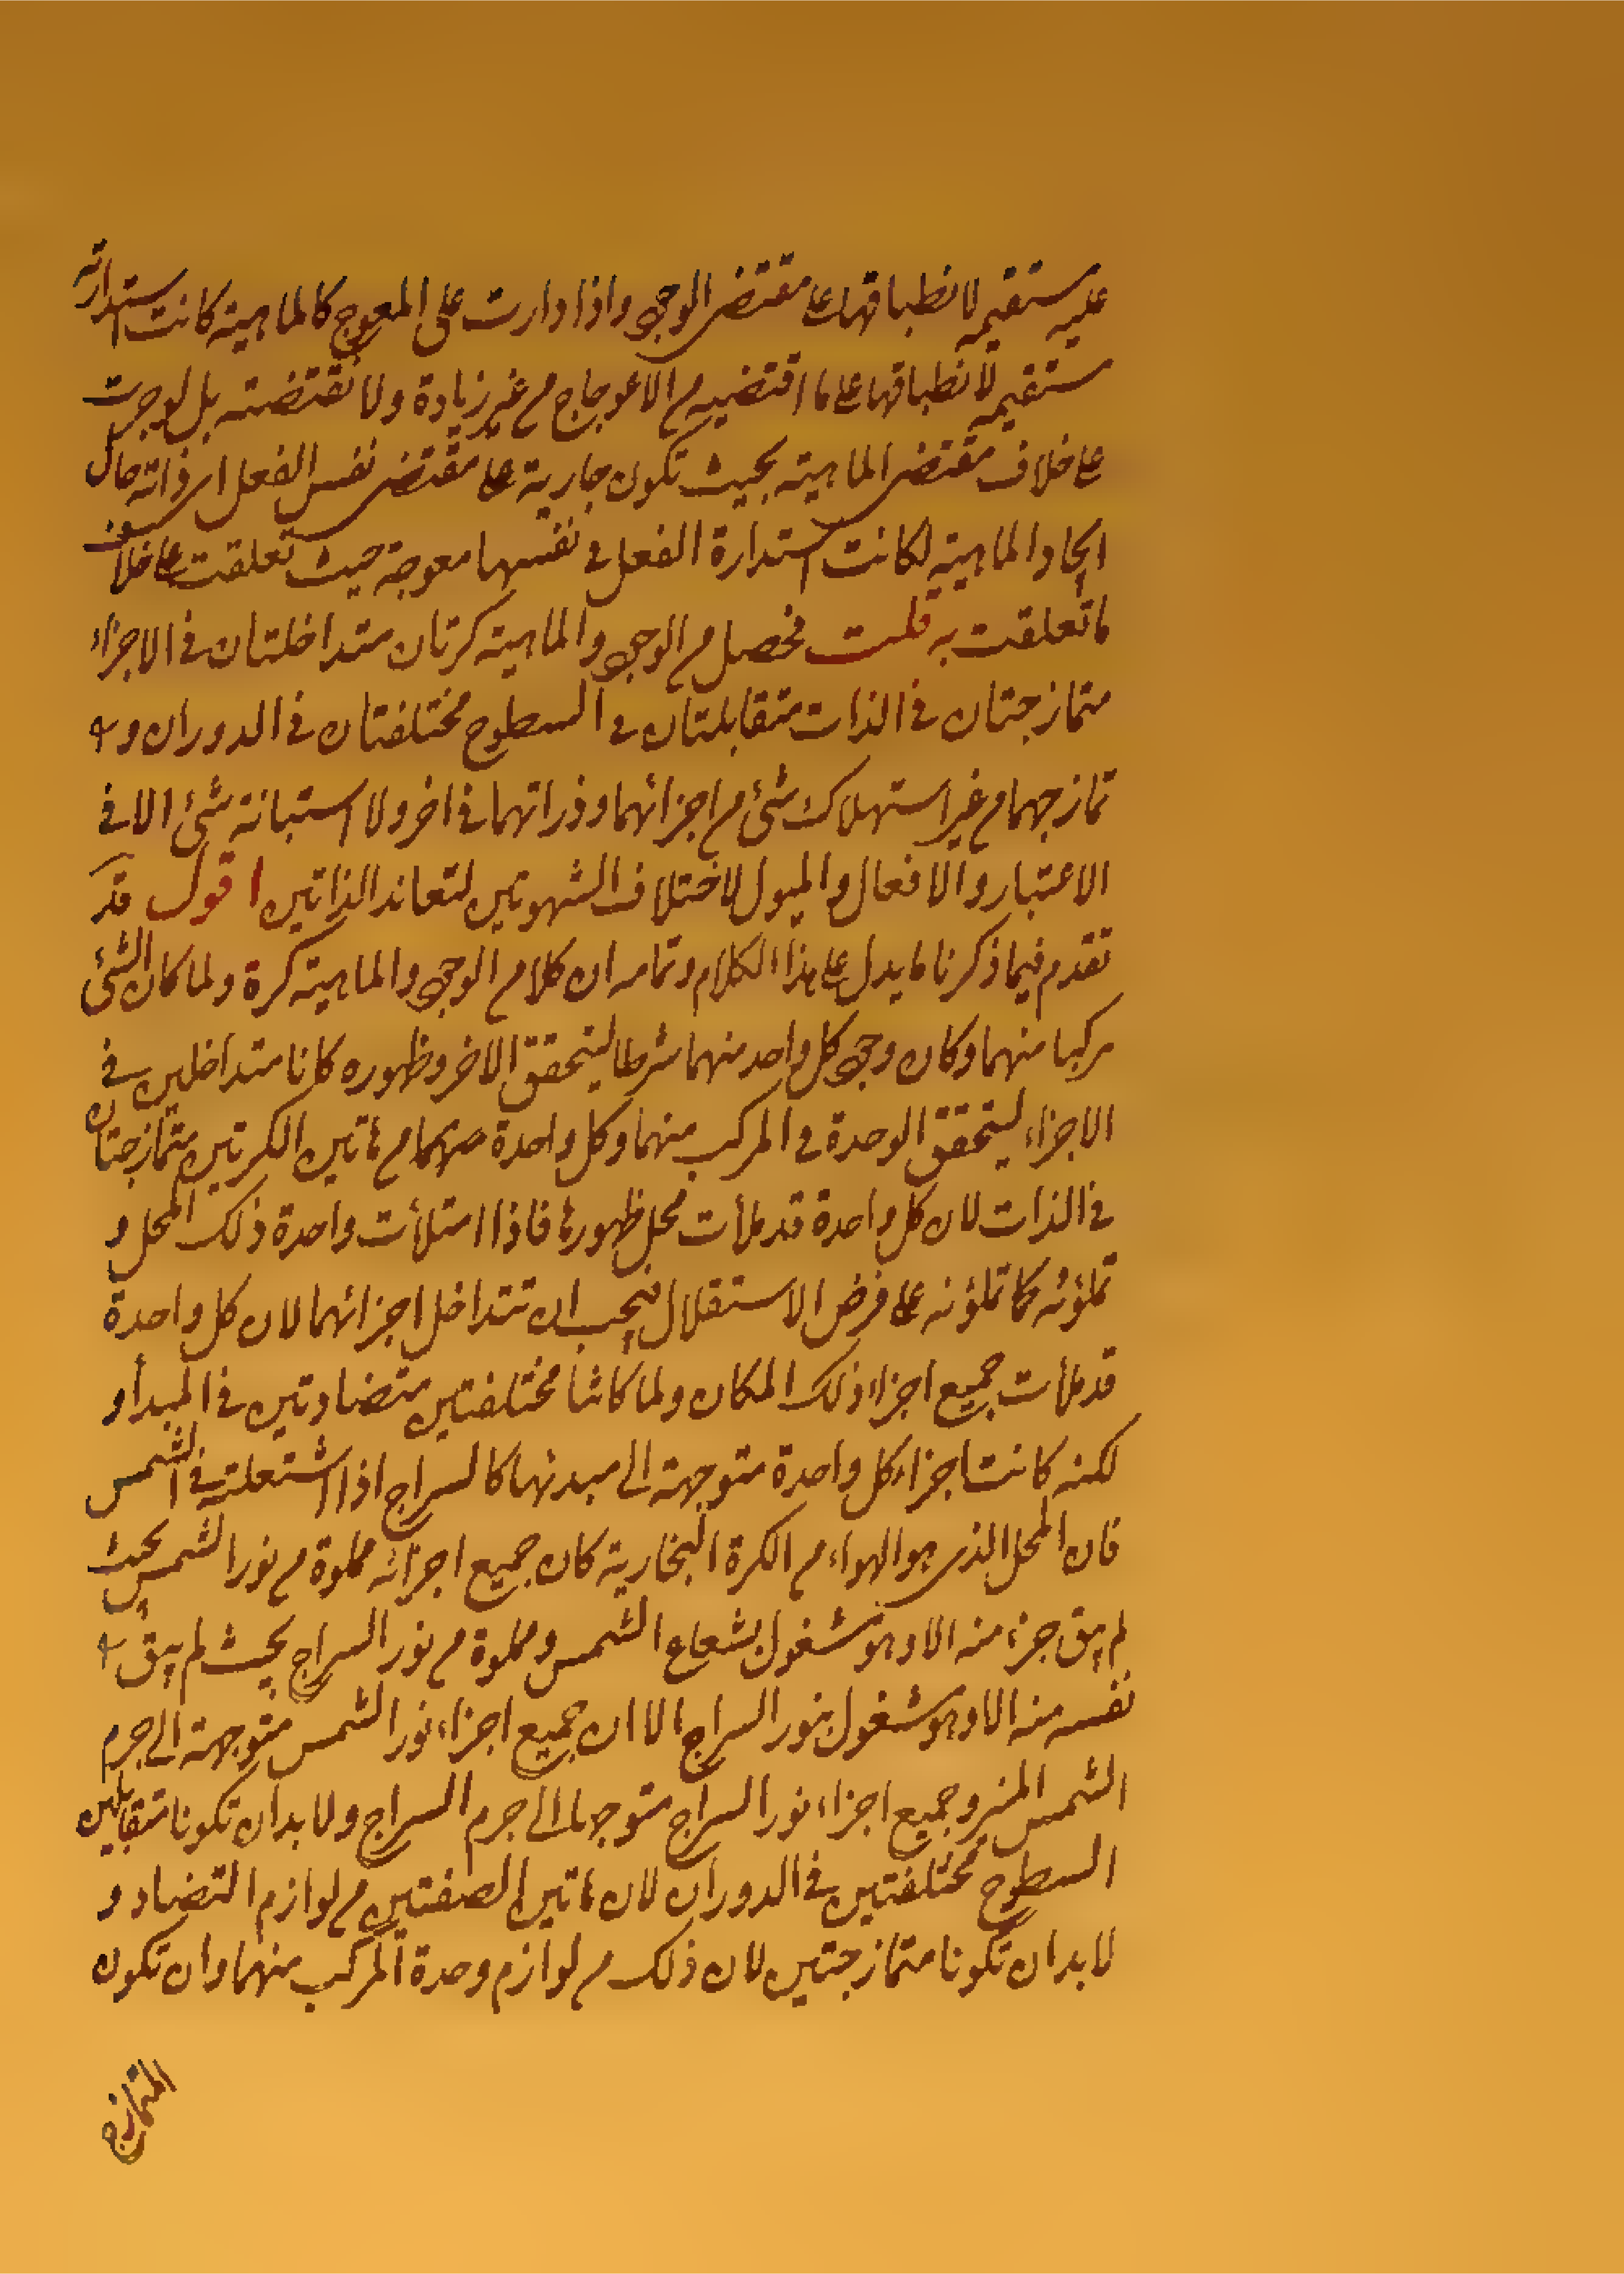 عليه مستقيمة لانطباقها على مقتضى الوجود واذا دارت على المعوج كالماهية كانت استدارته
مستقيمة لانطباقها على ما اقتضيه من الاعوجاج من غير زيادة ولا نقتضته بل لو جرت
على خلاف مقتضى الماهية بحيث تكون جارية على مقتضى نفس الفعل اى ذاته حال
ايجاد الماهية لكانت استدارة الفعل فى نفسها معوجة حيث تعلقت على خلاف
ما تعلقت به قلت فحصل من الوجود والماهية كرتان متداخلتان فى الاجزاء
متمازجتان فى الذات متقابلتان فى السطوح مختلفتان فى الدوران و
تمازجهما من غير استهلاك شئ من اجزائهما وذراتهما فى اخر ولا استبانة شئ الا فى
الاعتبار والافعال والميول لاختلاف الشهوتين لتعاند الذاتين اقول قد
تقدم فيما ذكرنا ما يدل على هذا الكلام وتمامه ان كلا من الوجود والماهية كرة ولما كان الشئ
مركبا منهما وكان وجود كل واحد منهما شرطا لتحقق الاخر وظهوره كانا متداخلين فى
الاجزاء ليتحقق الوحدة فى المركب منهما وكل واحدة منهما من هاتين الكرتين متمازجتان
فى الذات لان كل واحدة قد ملأت محل ظهورها فاذا امتلأت واحدة ذلك المحل و
تملؤه كما تملؤنه على فرض الاستقلال فيجب ان تتداخل اجزائهما لان كل واحدة
قد ملأت جميع اجزاء ذلك المكان ولما كانتا مختلفتين متضادتين فى المبدأ و
لكنه كانت اجزاء كل واحدة متوجهة الى مبدئها كالسراج اذا اشتعلته فى الشمس
فان المحل الذى هو الهواء من الكرة البخارية كان جميع اجزائه مملوة من نور الشمس بحيث
لم يبق جزء منه الا وهو مشغول بشعاع الشمس ومملوة من نور السراج بحيث لم يبق
نفسه منه الا وهو مشغول بنور السراج الا ان جميع اجزاء نور الشمس متوجهة الى جرم
الشمس المنير وجميع اجزاء نور السراج متوجها الى جرم السراج ولا بد ان تكونا متقابلين
السطوح مختلفتين فى الدوران لان هاتين الصفتين من لوازم التضاد و
لا بد ان تكونا متمازجتين لان ذلك من لوازم وحدة المركب منهما وان تكون
المتمازجة